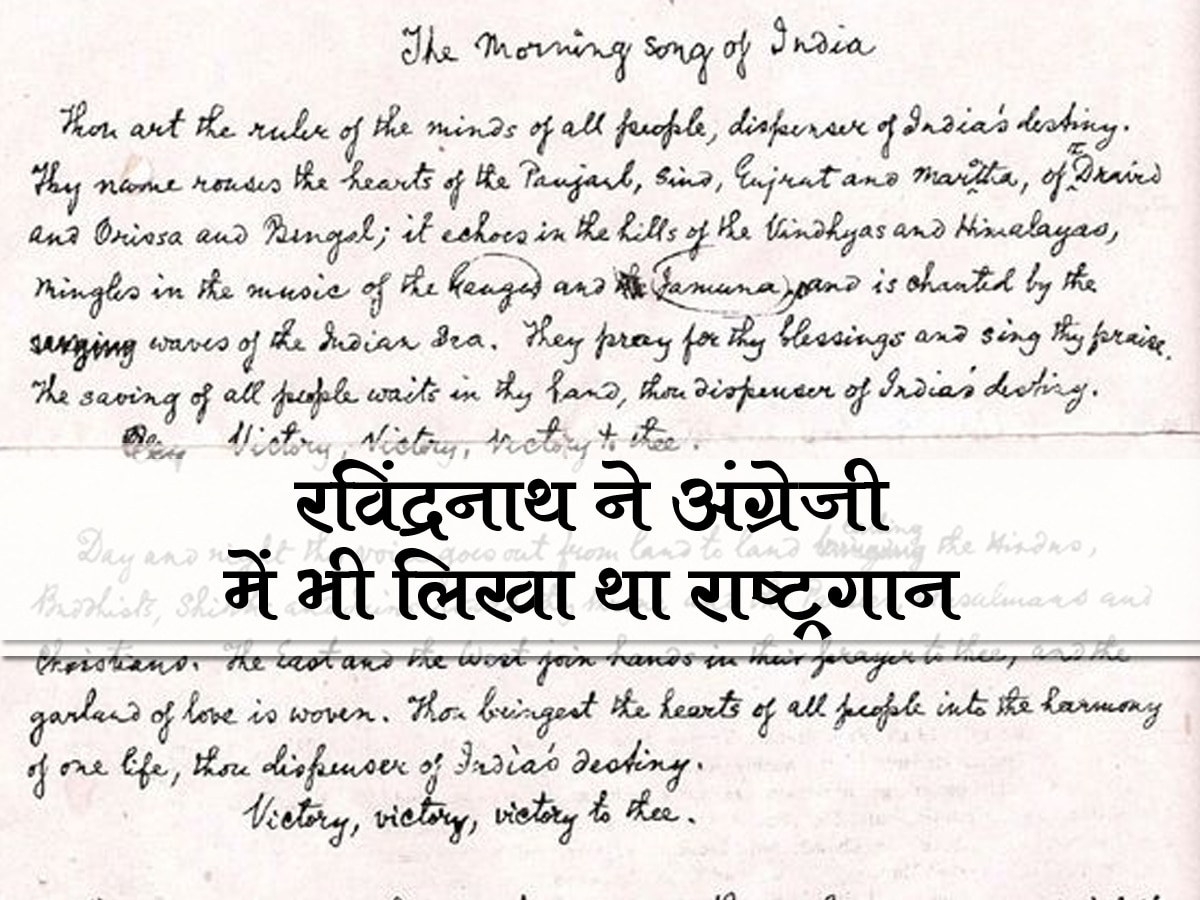 The Morning song of India
Thou art the ruler of the minds of all people, dispenser of India's destiny.
Thy name rouses the hearts of the Panjaub, Sind, Gujrat and Maratta, of Dravid
and Orissa and Bengal; it echoes in the hills of the Vindhyas and Himalayas,
mingles in the music of the Ganges and Jamuna and is chanted by the
surging waves of the Indian Sea. They pray for thy blessings and sing thy praise.
The saving of all people waits in thy hand, thou dispenser of India's destiny.
Victory, Victory, Victory to thee.
रविंद्रनाथ ने अंग्रेजी
Day and night thy voice goes out from land to land the Hindus,
में भी लिखा था राष्ट्रगान
Buddhists, and
Christians. The East and the West join hands in their prayer to thee, and the
garland of love is woven. Thou bringest the hearts of all people into the harmony
of one life, thou dispenser of India's destiny.
Victory, victory, victory to thee.